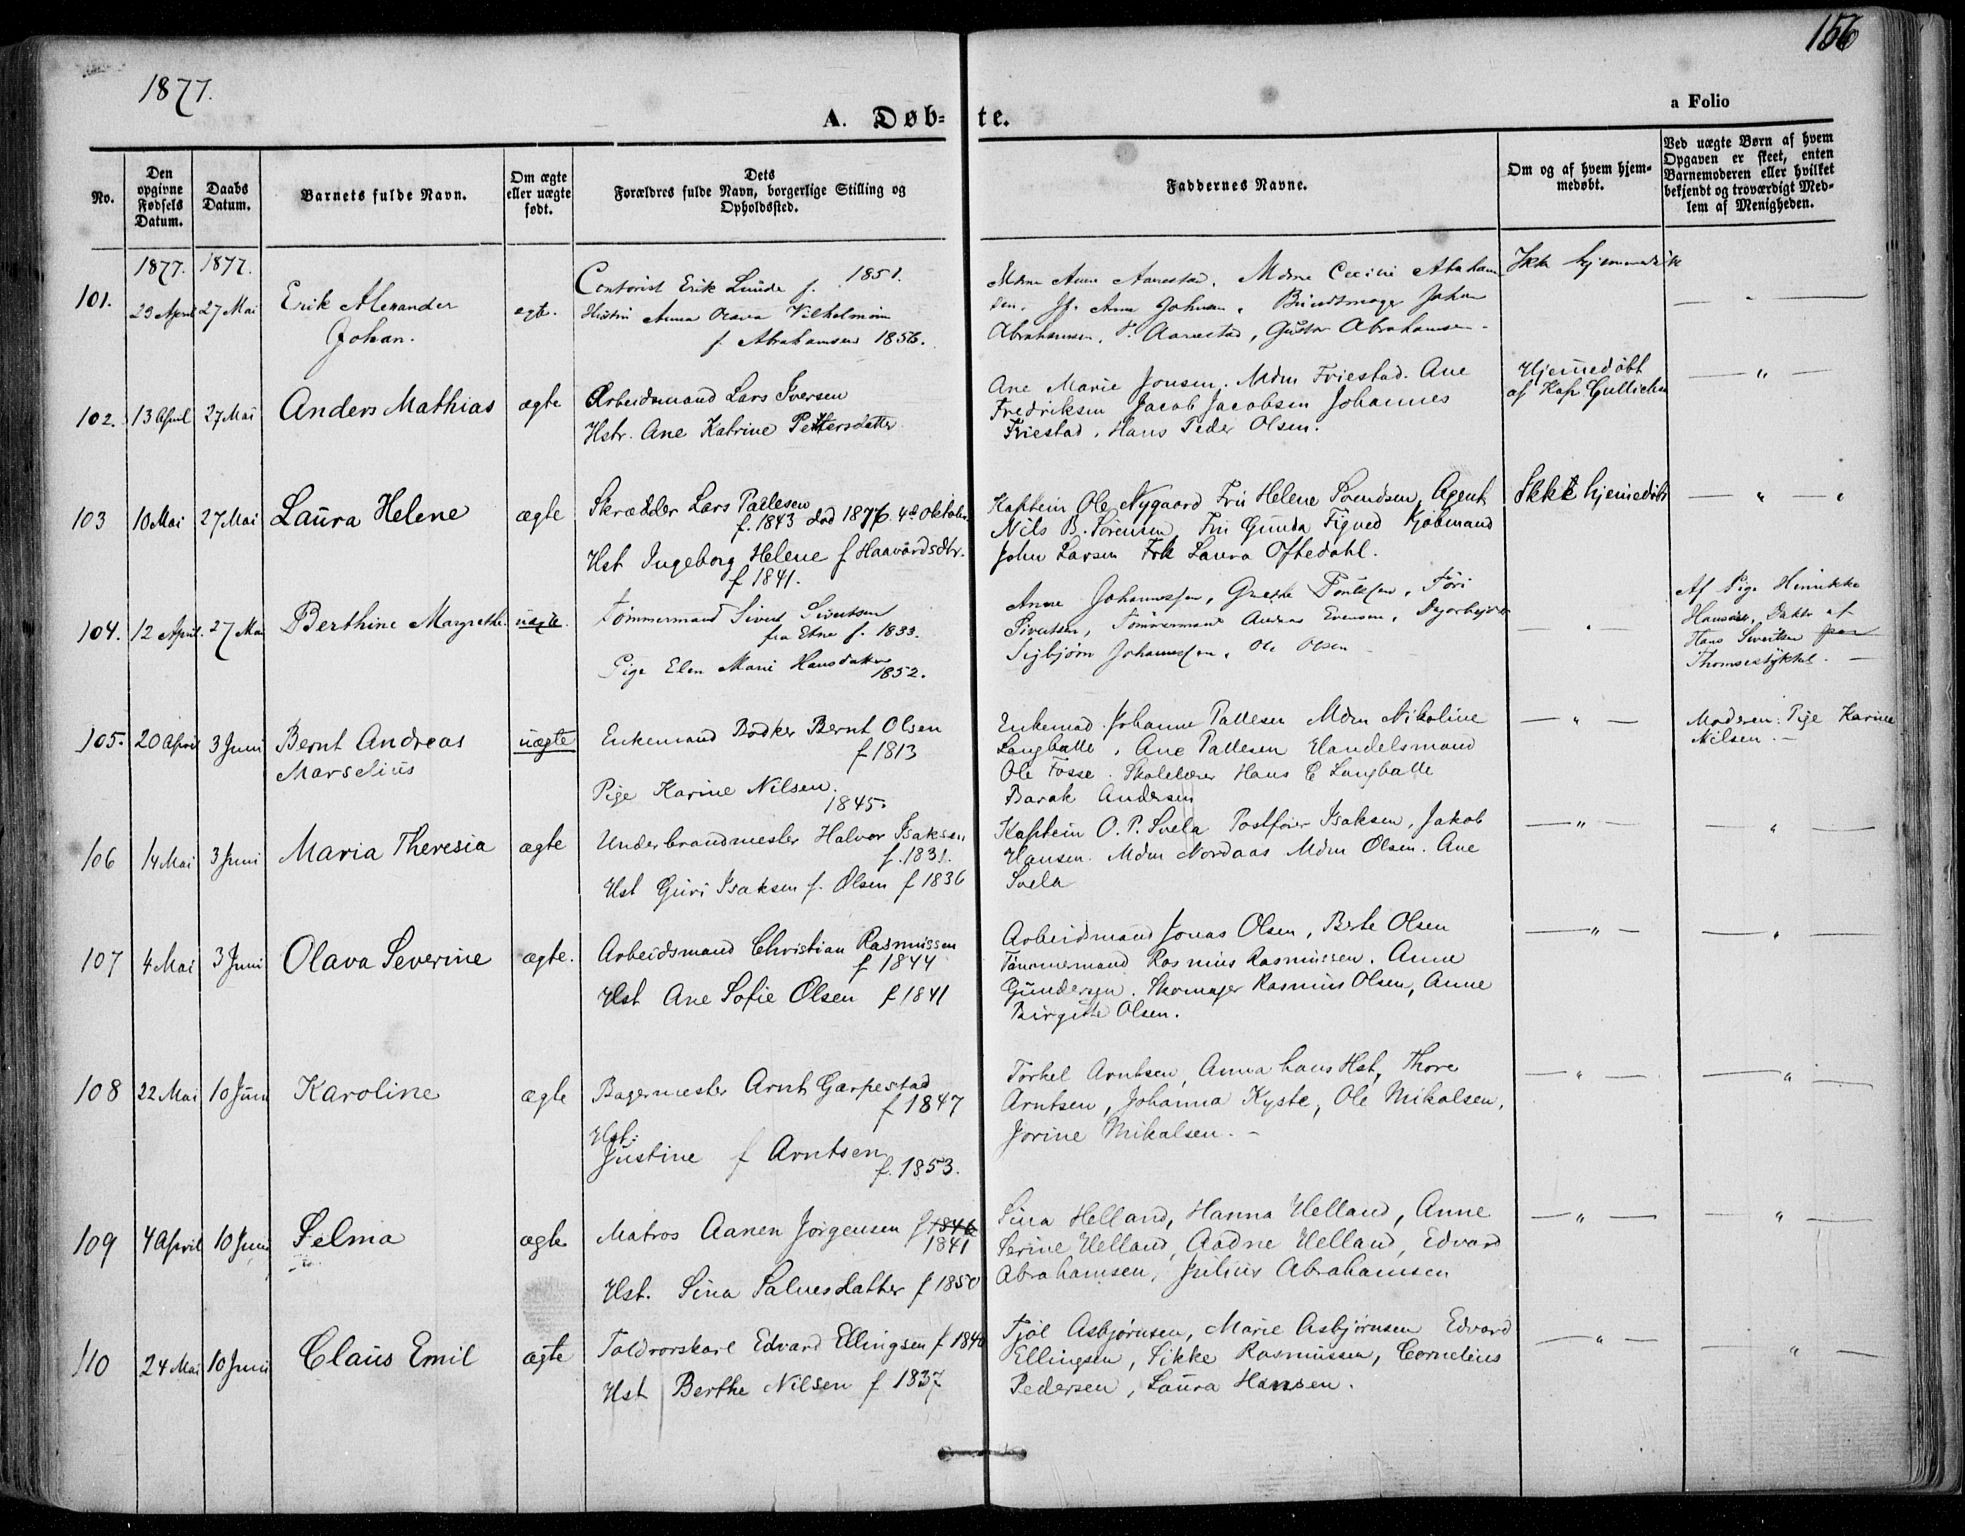 156
1877.
a Folio
A. Døb- te.
No.
Den opgivne Fødsels Datum.
Daabs Datum.
Barnets fulde Navn.
Om ægte eller uægte født.
Dets Forældres fulde Navn, borgerlige Stilling og Opholdssted.
Faddernes Navne.
Om og af hvem hjemmedøbt.
Ved uægte Børn af hvem Opgaven er skeet, enten Barnemoderen eller hvilket bekjendt og troværdigt Medlem af Menigheden.
1877. 1877.
101. 23 April 27 Mai Erik Alexander
Johan.
egte.
Contorist Erik Lunde f. 1851.
Hustru Anna Olava Vilhelmine
f. Abrahamsen 1856.
Mdme Anne Aarrestad, Mdme Cecilie Abraham
sen, Jf. Anna Johnsen, Bundtmager Johan
Abrahamsen, P. Aarrestad, Gustav Abrahamsen.
Ikke hjemmedøbt
— " —
102. 13 April 27 Mai Anders Mathias ægte
Arbeidsmand Lars Iversen
Hstr. Ane Katrine Pettersdatter
Ane Marie Jonsen. Mdm Friestad. Ane
Fredriksen Jacob Jacobsen Johannes
Friestad, Hans Peder Olsen.
Hjemedøbt
af Kap. Gullichsen
— " —
103 10 Mai 27 Mai Laura Helene ægte
Skrædder Lars Pallesen
f. 1843 død 1876 4de Oktober
Hst Ingeborg Helene f Haavardsdtr.
f 1841.
Kaptein Ole Nygaard Fru Helene Svendsen, Agent
Nils B. Sørensen Fru Gunda Figved Kjøbmand
John Larsen Frk Laura Oftedahl.
Ikke hjemedøbt
— " —
104. 12 April. 27 Mai Berthine Margrethe uægte.
Tømmermand Sivert Sivertsen
fra Etne f. 1833.
Pige Elen Marie Hansdatter
1852.
Anne Johannessen, Grethe Poulsen, Tøri
Sivertsen, Tømmermand Andreas Evensen, Dagarbeider
Sigbjørn Johannessen, Ole Olsen
— " —
Af Pige Hinrikke
Hansen, Datter af
Hans Sivertsen
Thomsestykket. —
105. 20 April 3 Juni Bernt Andreas
Marselius
uægte
Enkemand Bødker Bernt Olsen
f 1813
Pige Karine Nilsen.
1845.
Enkemad. Johanne Pallesen Mdm Nikoline
Langballe, Ane Pallesen Handelsmand
Ole Fosse. Skolelærer Hans E Langballe
Barak Andersen
— " —
Moderen: Pige Karine
Nilsen. —
106 14 Mai 3 Juni Maria Theresia ægte
Underbrandmester Halvor Isaksen
f. 1831.
Hst Guri Isaksen f. Olsen f 1836
Kaptein O. P. Svela Postfører Isaksen, Jakob
Hansen. Mdm Nordaas Mdm Olsen. Ane
Svela
— " —
— " —
107 4 Mai 3 Juni Olava Severine ægte.
Arbeidsmand Christian Rasmussen
f 1844
Hst Ane Sofie Olsen f 1841
Arbeidsmand Jonas Olsen, Berte Olsen
Tømmermand Rasmus Rasmussen. Anne
Gundersen. Skomager Rasmus Olsen, Anne
Birgitte Olsen.
— " —
— " —
108 22 Mai 10 Juni Karoline ægte
Bagermester Arnt Garpestad
f 1847
Hst:
Justine f Arntsen
f. 1853.
Torkel Arntsen, Anna hans Hst, Thore
Arntsen, Johanna Kyste, Ole Mikalsen,
Jorine Mikalsen. —
— " —
— " —
109 4 April 10 Juni Selma ægte
Matros Aanen Jørgensen f 1846
1841
Hst. Sina Salvesdatter f 1850
Sina Helland, Hanna Helland, Anne
Serine Helland, Aadne Helland, Edvard
Abrahamsen, Julius Abrahamsen
— " —
— " —
110 24 Mai 10 Juni Claus Emil ægte
Toldrorskarl Edvard Ellingsen f 1840
Hst Berthe Nilsen f 1837
Tjøl Asbjørnsen, Marie Asbjørnsen Edvard
Ellingsen, Sikke Rasmussen, Cornelius
Pedersen, Laura Hansen.
— " —
— " —